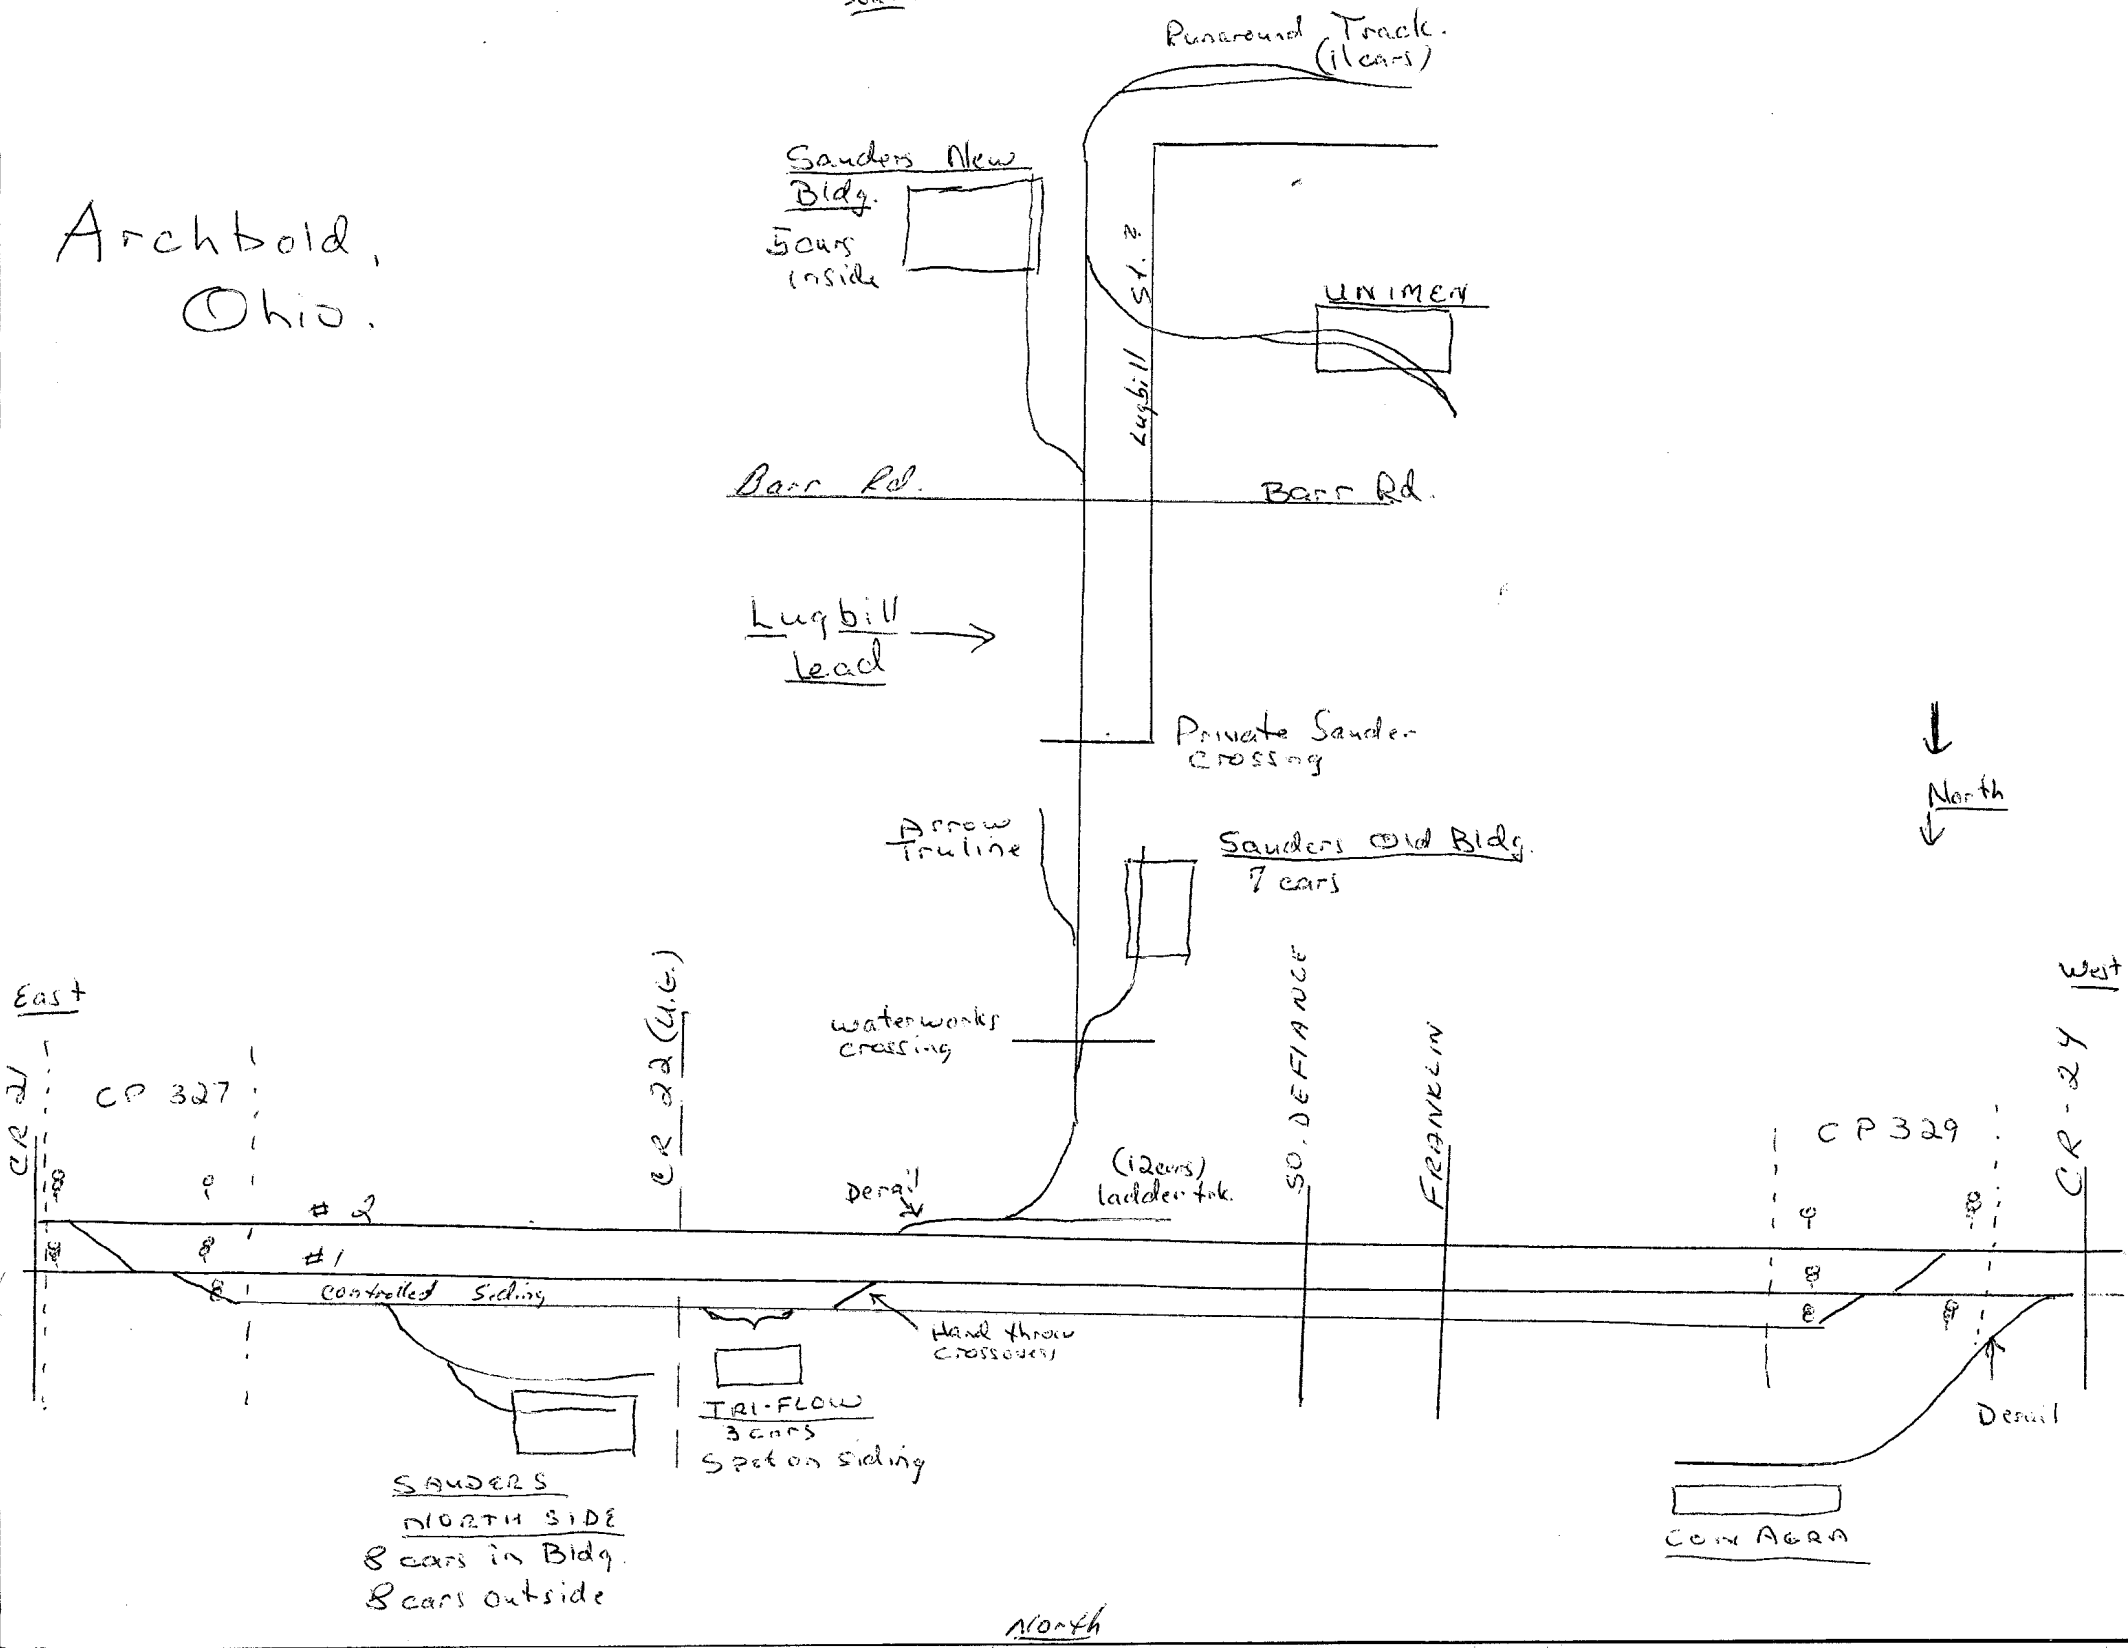 Runaround Track.
(11 cars)
Sauders New
Bldg.
5 cars
inside
Archbold,
Ohio.
Lugbill St.?
UNIMEN
Barr Rd.
Barr Rd.
Lugbill
Lead
Private Sauder
crossng
North
Arrow
Truline
Sauders Old Bldg.
7 cars
East
West
waterworks
crossing
CR 21
CP 327
CR 22 (U.G.)
SO. DEFIANCE
FRANKLIN
CP 329
CR-24
(12 cars)
ladder trk.
Derail
# 2
#1
controlled Siding
Hand throw
crossovers
TRI-FLOW
3 cars
Spot on siding
Derail
SAUDERS
NORTH SIDE
8 cars in Bldg.
8 cars outside
CON AGRA
North